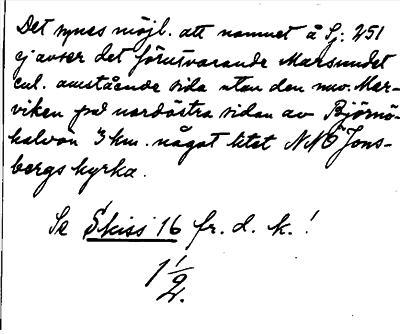 Det synes möjl. att namnet å Sj: 251
ej avser det förutvarande Marsundet
enl. omstående sida utan den nuv. Mar-
viken på nordöstra sidan av Björnö-
halvön 3 km. något litet NNÖ Jons-
bergs kyrka.
Se Skiss 16 fr. d. k.!
1 1/2.